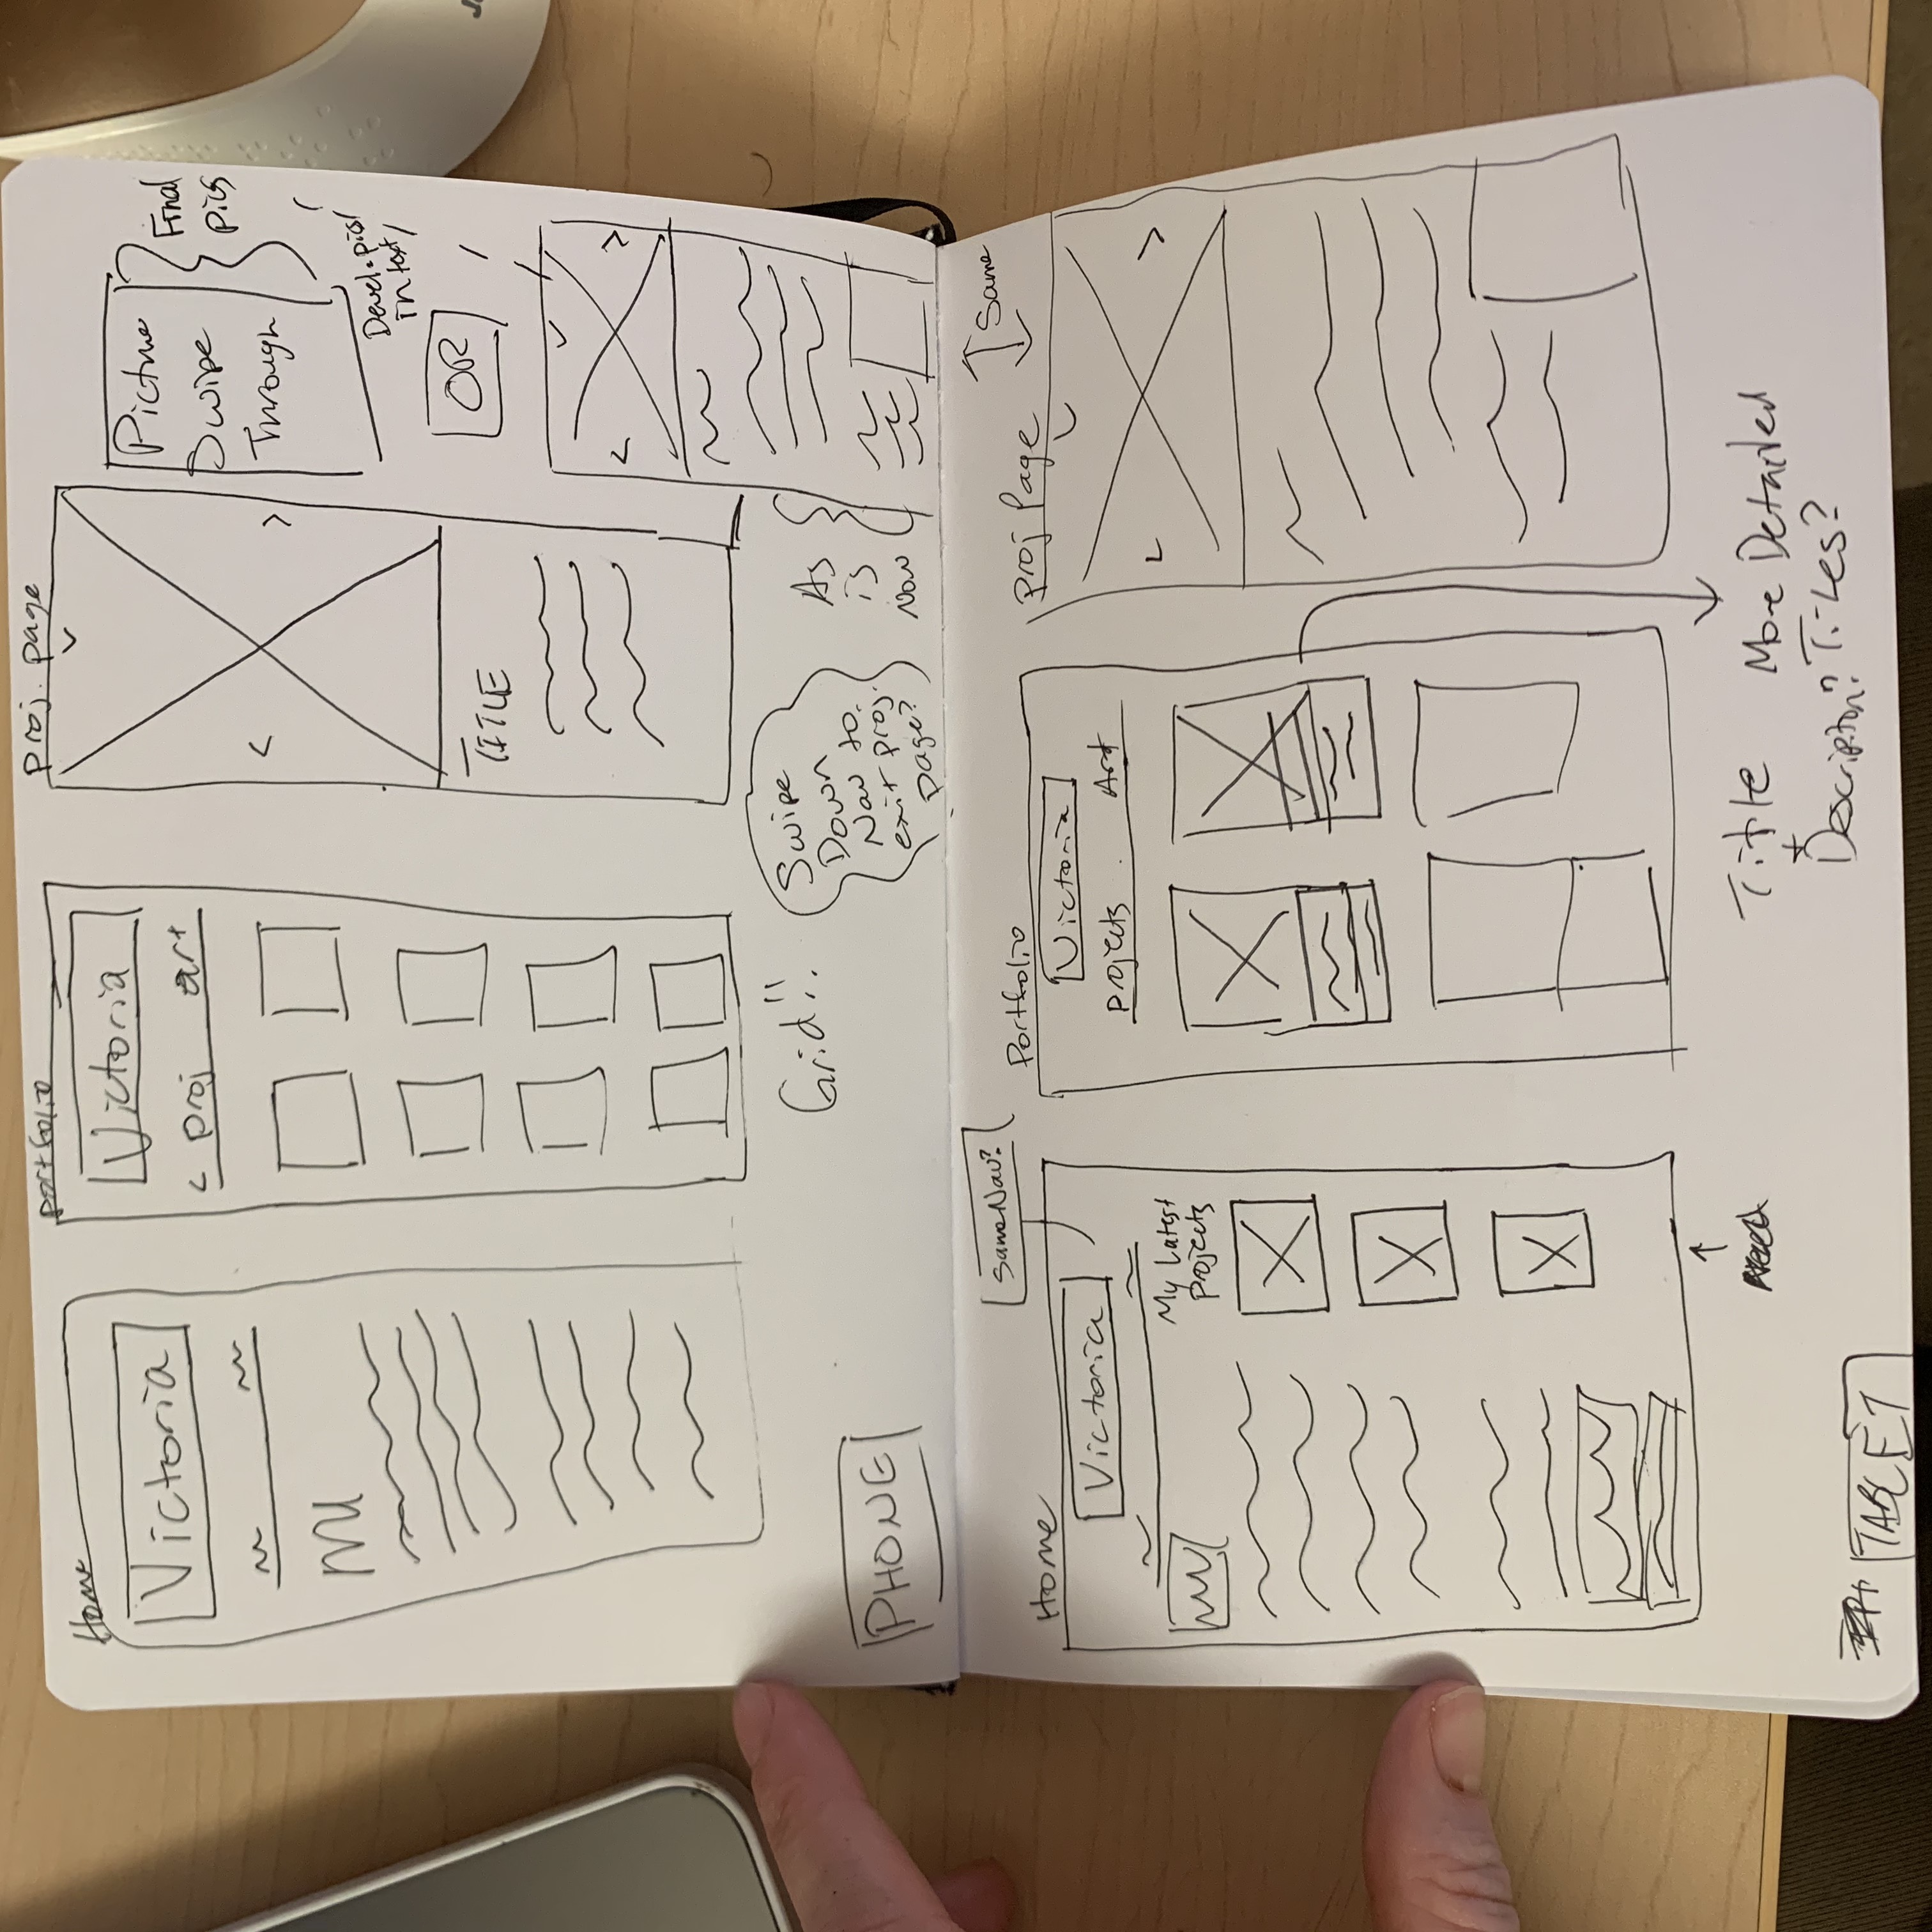 Home
Victoria
Portfolio
Victoria
< Proj art
Proj. page
< >
TITLE
Picture
Swipe
Through
Final
pics
Devel. pics/
in text/
OR
< >
Grid!!
Swipe
Down
Nav to
exit proj.
page?
As
is
Now
PHONE
Same
Same Nav?
Home
Victoria
My Latest
Projects
Portfolio
Victoria
Projects Art
Proj Page
< >
Title
+
Descripiton?
More Detailed
Titles?
TABLET